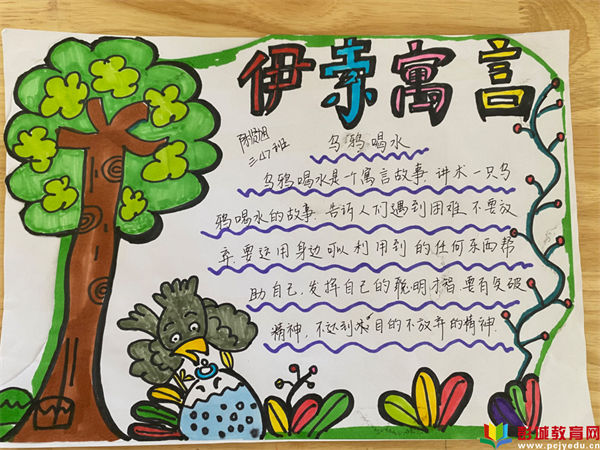 伊索寓言
三47班
乌鸦喝水
乌鸦喝水是一个寓言故事.讲术一只乌
鸦喝水的故事.告诉人们遇到困难.不要放
弃.要运用身边可以利用到的任何东西帮
助自己.发挥自己的聪明才智.要有突破
精神.不达到水目的不放弃的精神.
彭城教育网
www.pcjyedu.cn